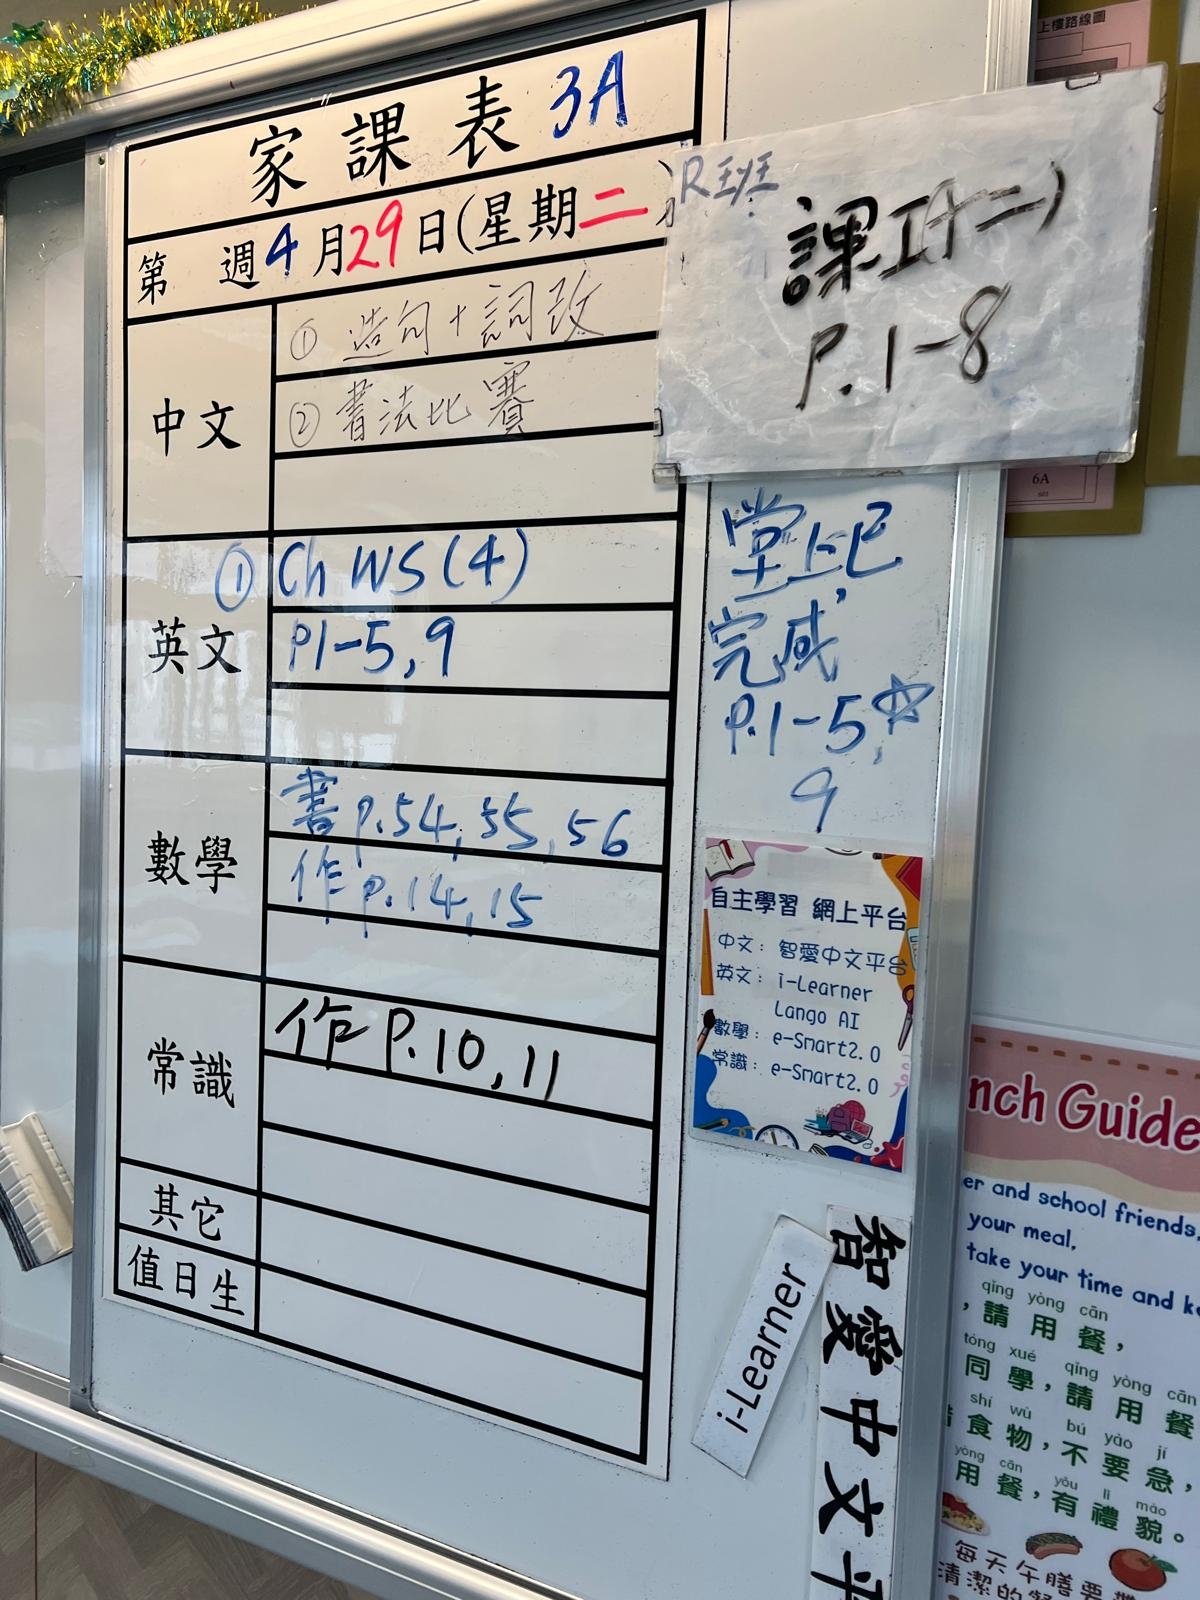 家課表 3A
第 週 4月29日(星期二)
中文
① 造句+詞改
② 書法比賽
英文
① Ch WS (4)
P1-5, 9
數學
書 P.54, 55, 56
作 P.14, 15
常識
作 P.10, 11
其它
值日生
R班
課工(十二)
P.1-8
堂上已
完成
P.1-5,☆
9
自主學習 網上平台
中文：智愛中文平台
英文：i-Learner
Lango AI
數學：e-Smart2.0
常識：e-Smart2.0
i-Learner
智愛中文平
上樓路線圖
6A
nch Guide
er and school friends,
your meal,
take your time and ke
qǐng yòng cān
，請用餐，
tóng xué qǐng yòng cān
同學，請用餐
shí wù bú yào jí
食物，不要急，
yòng cān yǒu lǐ mào
用餐，有禮貌。
每天午膳要帶
清潔的餐